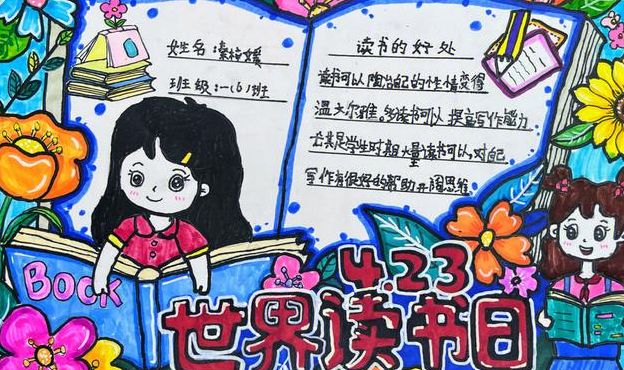 姓名:秦梓媛
班级:一(6)班
读书的好处
读书可以陶冶自己的性情变得
温文尔雅.多读书可以提高写作能力
尤其是学生时期大量读书可以,对自己
写作有很好的帮助开阔思维
BOOK
4.23
世界读书日